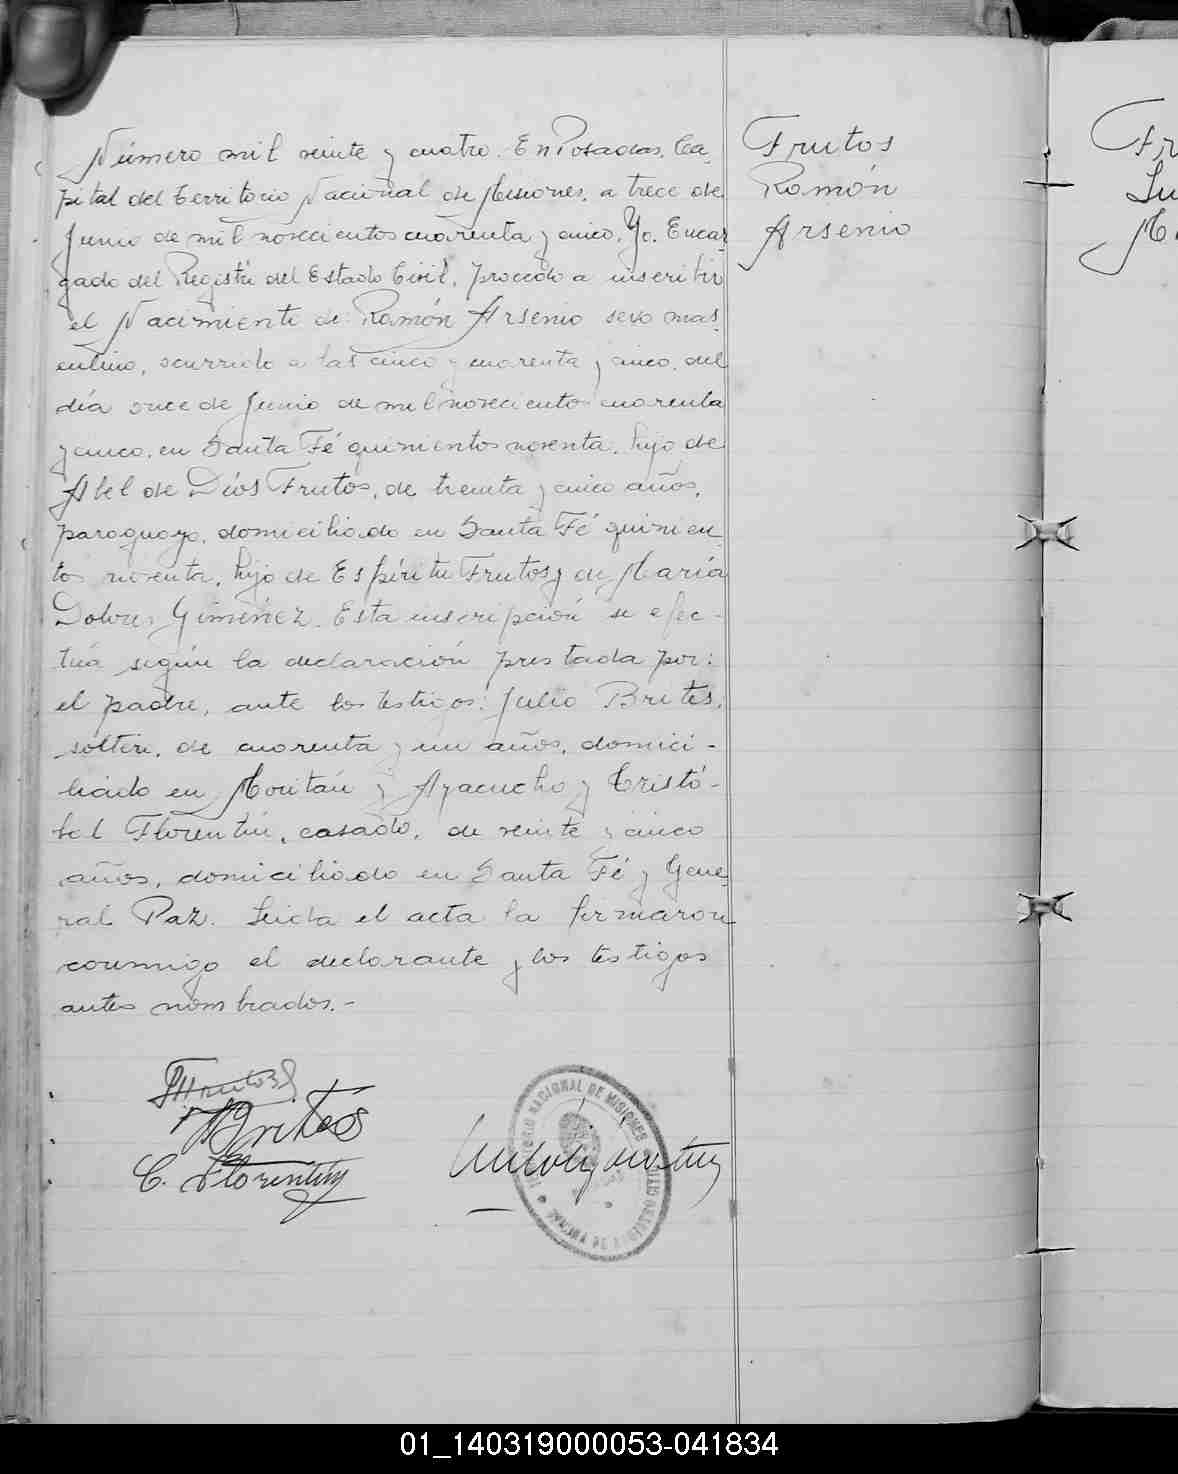 Número mil veinte y cuatro. En Posadas, Ca-
pital del Territorio Nacional de Misiones, a trece de
Junio de mil novecientos cuarenta y cinco, Yo, Encar-
gado del Registro del Estado Civil, procedo a inscribir
el Nacimiento de: Ramón Arsenio sexo mas-
culino, ocurrido a las cinco y cuarenta y cinco, del
día once de Junio de mil novecientos cuarenta
y cinco, en Santa Fé quinientos noventa, hijo de
Abel de Dios Frutos, de treinta y cinco años,
paraguayo, domiciliado en Santa Fé quinien-
tos noventa, hijo de Espíritu Frutos y de María
Dolores Giménez. Esta inscripción se efec-
túa según la declaración prestada por:
el padre, ante los testigos: Julio Brites,
soltero, de cuarenta y un años, domici-
liado en Moritán y Ayacucho y Cristó-
bal Florentín, casado, de veinte y cinco
años, domiciliado en Santa Fé y Gene-
ral Paz. Leida el acta la firmaron
conmigo el declarante y los testigos
antes nombrados.-
Frutos
Ramón
Arsenio
Frutos
Brites
C. Florentín
TERRITORIO NACIONAL DE MISIONES
Fr
Lu
M
01_140319000053-041834